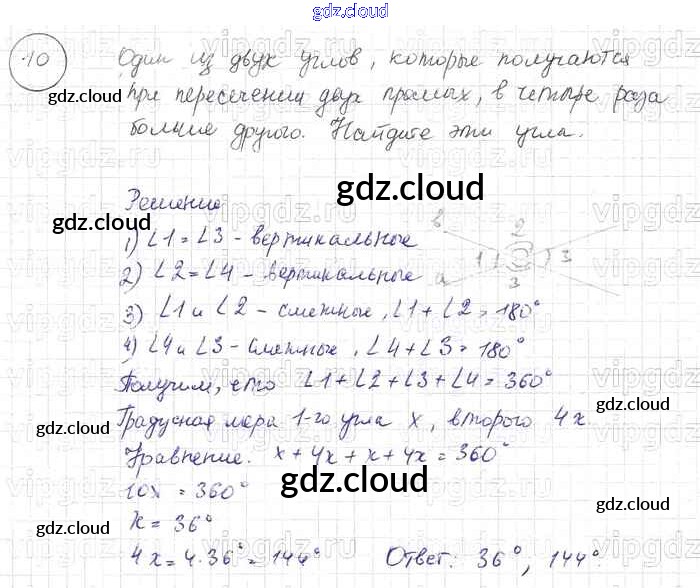 gdz.cloud
10 Один из двух углов, которые получаются
при пересечении двух прямых, в четыре раза
больше другого. Найдите эти углы.
gdz.cloud
gdz.cloud
Решение
gdz.cloud
1) ∠1 = ∠3 - вертикальные
2) ∠2 = ∠4 - вертикальные
3) ∠1 и ∠2 - смежные, ∠1 + ∠2 = 180°
4) ∠4 и ∠3 - смежные, ∠4 + ∠3 = 180°
в 2
1 3
а 3
Получим, что ∠1 + ∠2 + ∠3 + ∠4 = 360°
gdz.cloud
Градусная мера 1-го угла x, второго 4x.
gdz.cloud
Уравнение. x + 4x + x + 4x = 360°
gdz.cloud
10x = 360°
x = 36°
gdz.cloud
gdz.cloud
4x = 4·36° = 144° Ответ: 36°, 144°.
gdz.cloud